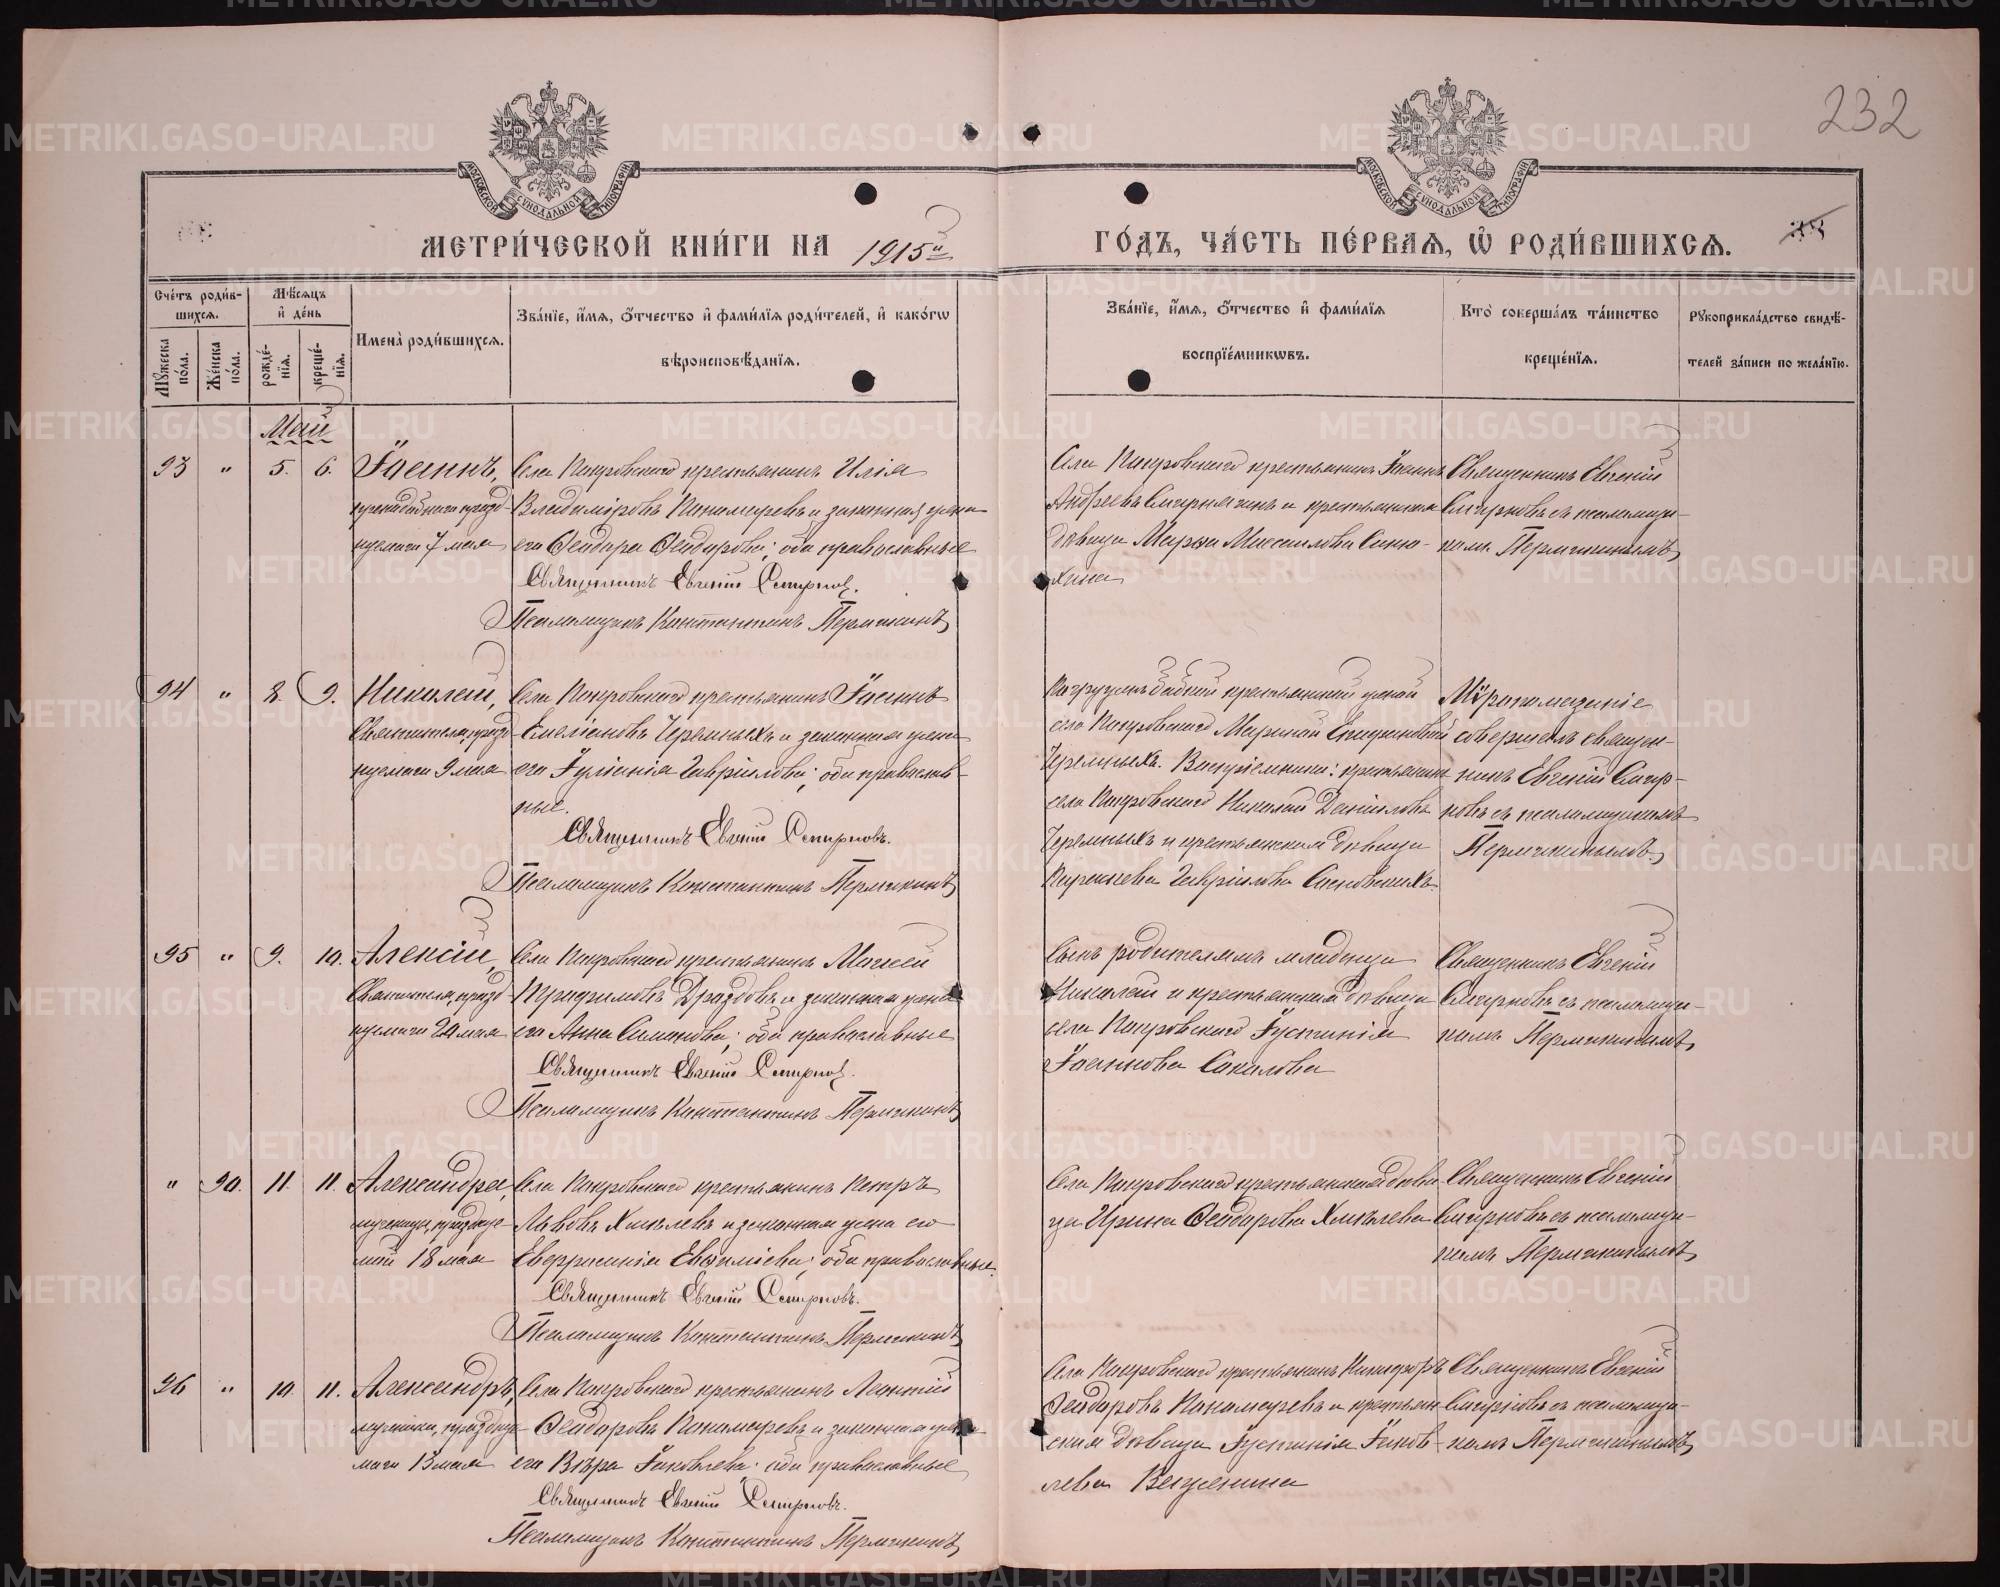 232
МОСКОВСКОЙ СѴНОДАЛЬНОЙ ТИПОГРАФІИ
МОСКОВСКОЙ СѴНОДАЛЬНОЙ ТИПОГРАФІИ
МЕТРИ́ЧЕСКОЙ КНИ́ГИ НА 1915й
ГО́ДЪ, ЧА́СТЬ ПЕ́РВАѦ, Ѡ҆ РОДИ́ВШИХСѦ.
Сче́тъ роди́в-
шихсѧ.
Мѣ́сѧцъ
и҆ де́нь
Мꙋ́жеска по́ла.
Же́нска по́ла.
рожде́-
нїѧ.
креще́-
нїѧ.
И҆мена̀ роди́вшихсѧ.
Зва́нїе, и҆́мѧ, ѻ҆́тчество и҆ фами́лїѧ роди́телей, и҆ како́гѡ
вѣроисповѣ́данїѧ.
Зва́нїе, и҆́мѧ, ѻ҆́тчество и҆ фами́лїѧ
воспрїе́мникѡвъ.
Кто̀ соверша́лъ та́инство
креще́нїѧ.
Рꙋкоприкла́дство свидѣ́-
телей за́писи по жела́нїю.
Май
93 " 5. 6. Іоаннъ,
преподобнаго празд-
нуемаго 7 мая
Села Покровскаго крестьянинъ Илія
Владиміровъ Пономаревъ и законная жена
его Ѳеодора Ѳеодорова; оба православные
Священникъ Евгеній Смирнов.
Псаломщикъ Константинъ Пермякинъ
Села Покровскаго крестьянинъ Іоаннъ
Андреевъ Смирнягинъ и крестьянская
дѣвица Марѳа Михаилова Синю-
хина
Священникъ Евгеній
Смирновъ съ псаломщи-
комъ Пермякинымъ
94 " 8. 9. Николай,
Святителя, празд-
нуемаго 9 мая
Села Покровскаго крестьянинъ Іоаннъ
Емеліановъ Черемныхъ и законная жена
его Іуліанія Гавріилова; оба православ-
ные.
Священникъ Евгеній Смирновъ.
Псаломщикъ Константинъ Пермякинъ
Погруженъ бабкой крестьянской женой
села Покровскаго Мариной
Черемныхъ. Воспріемники: крестьянинъ
села Покровскаго Николай Даніиловъ
Черемныхъ и крестьянская дѣвица
Параскева Гавріилова Сосновскихъ.
Мѵропомазаніе
совершалъ священ-
никъ Евгеній Смир-
новъ съ псаломщикомъ
Пермякинымъ.
95 " 9. 10. Алексій,
Святителя, празд-
нуемаго 20 мая
Села Покровскаго крестьянинъ Моисей
Дроздовъ и законная жена
его Анна Симонова; оба православные
Священникъ Евгеній Смирнов.
Псаломщикъ Константинъ Пермякинъ
Сынъ родителямъ младенца
Николай и крестьянская дѣвица
села Покровскаго Іустинія
Іоаннова Соколова
Священникъ Евгеній
Смирновъ съ псаломщи-
комъ Пермякинымъ
" 90. 11. 11. Александра,
мученицы, празднуе-
мой 18 мая
Села Покровскаго крестьянинъ Петръ
Львовъ Хмѣлевъ и законная жена его
Евфросинія Евѳиміева; оба православные.
Священникъ Евгеній Смирновъ.
Псаломщикъ Константинъ Пермякинъ
Села Покровскаго крестьянская дѣви-
ца Ирина Ѳеодорова Хмѣлева
Священникъ Евгеній
Смирновъ съ псаломщи-
комъ Пермякинымъ
96 " 10. 11. Александръ,
мученика, праздну-
маго 13 мая
Села Покровскаго крестьянинъ Леонтій
Ѳеодоровъ Пономаревъ и законная жена
его Вѣра Іаковлева; оба православные
Священникъ Евгеній Смирновъ.
Псаломщикъ Константинъ Пермякинъ
Села Покровскаго крестьянинъ Никифоръ
Ѳеодоровъ Пономаревъ и крестьян-
ская дѣвица Іустинія Іаков-
лева
Священникъ Евгеній
Смирновъ съ псаломщи-
комъ Пермякинымъ
METRIKI.GASO-URAL.RU